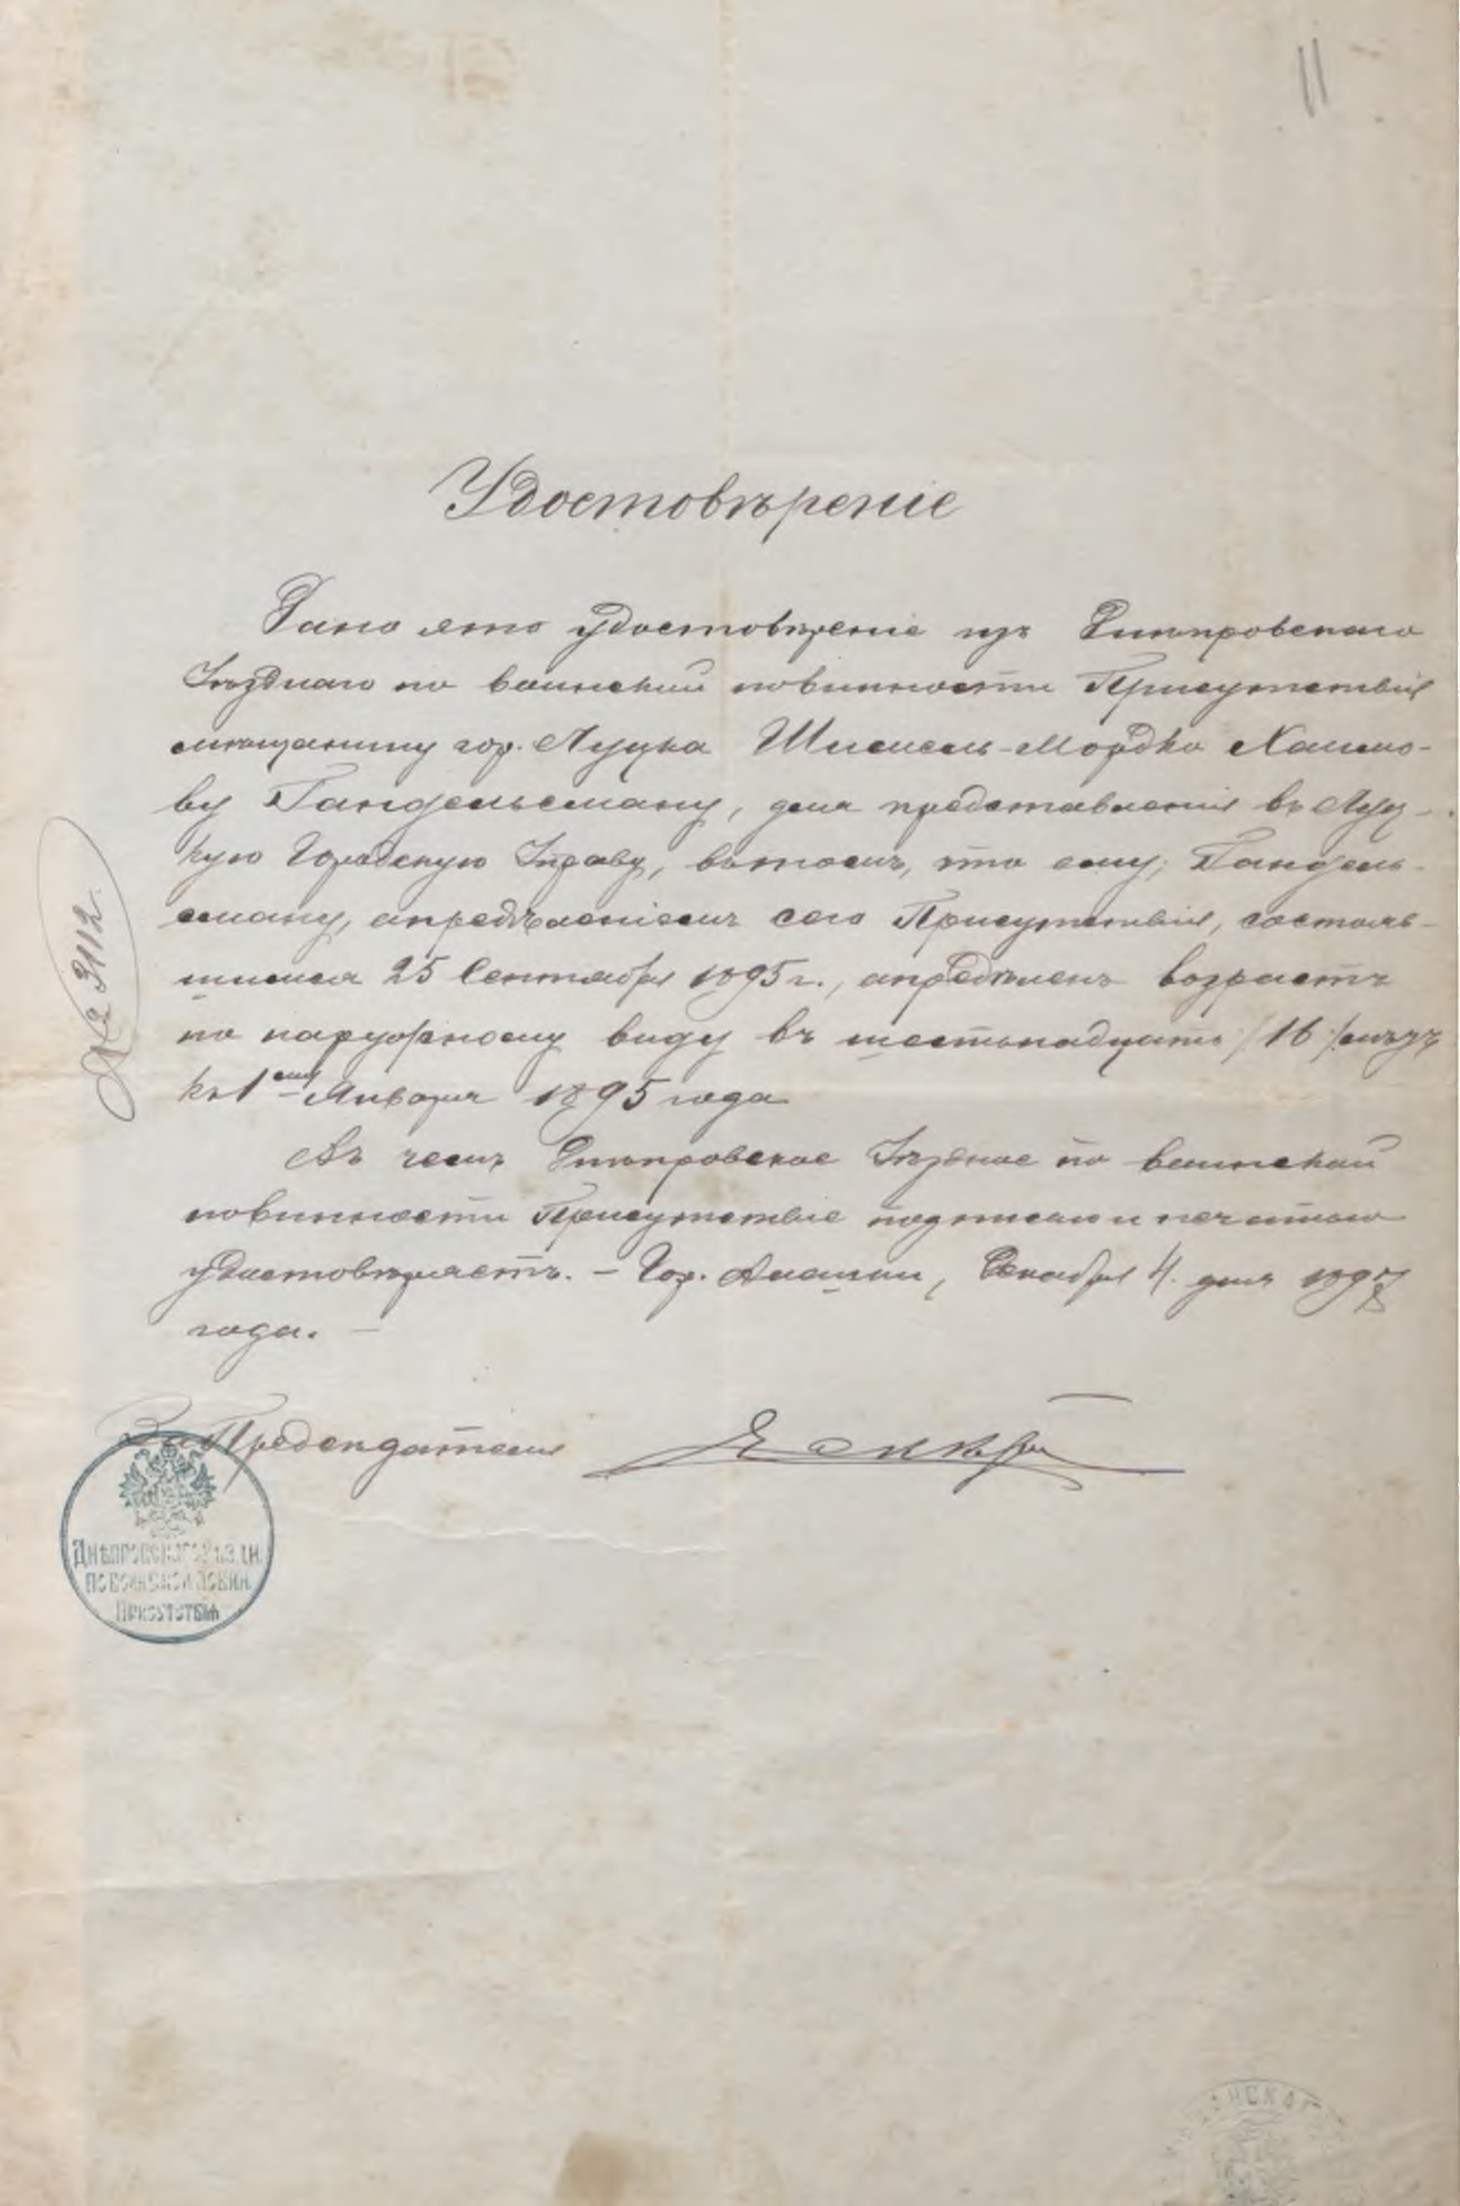 11
Удостовѣреніе
Дано это удостовѣреніе изъ Днѣпровскаго
Уѣзднаго по воинской повинности Присутствія
мѣщанину гор. Луцка Шмиель-Мордко Хаимо-
ву Гандельсману, для представленія въ Луц-
кую Городскую Управу, въ томъ, что ему, Гандель-
сману, опредѣленіемъ сего Присутствія, состояв-
шимся 25 Сентября 1895 г., опредѣленъ возрастъ
по наружному виду въ шестьнадцать /16/ лѣтъ
къ 1ому Января 1895 года
Въ чемъ Днѣпровское Уѣздное по воинской
повинности Присутствіе подписью и печатью
удостовѣряетъ. – Гор. Алешки, Декабря 4 дня 1897
года. –
№ 3112.
За Предсѣдателя
Днѣпровскаго Уѣздн.
по воинской повин.
Присутствія